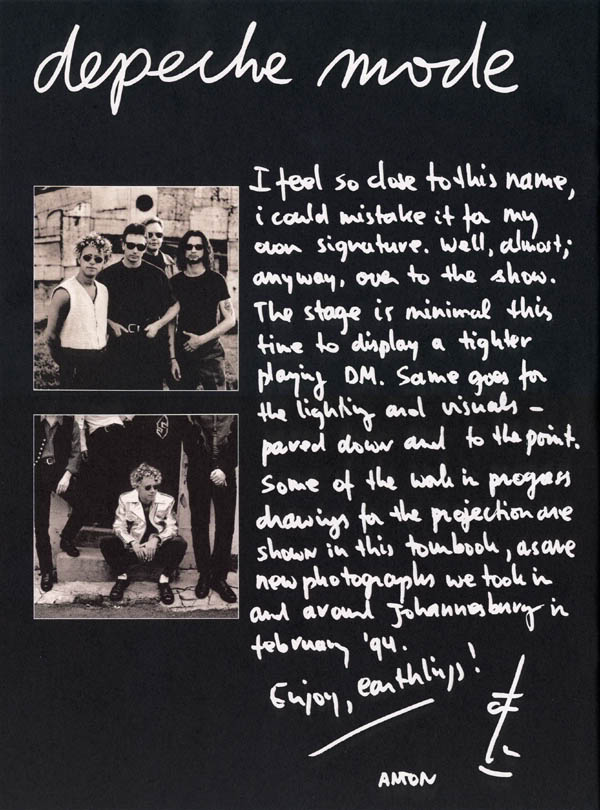 depeche mode
I feel so close to this name,
i could mistake it for my
own signature. Well, almost;
anyway, over to the show.
The stage is minimal this
time to display a tighter
playing DM. Same goes for
the lighting and visuals –
pared down and to the point.
Some of the work in progress
drawings for the projection are
shown in this tourbook, as are
new photographs we took in
and around Johannesburg in
february '94.
Enjoy, earthlings!
ANTON